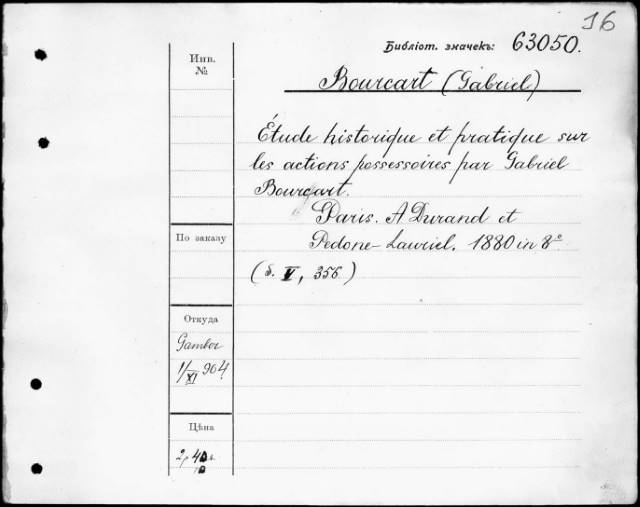 16
Библіот. значекъ: 63050.
Инв.
№
Bourcart (Gabriel)
Étude historique et pratique sur
les actions possessoires par Gabriel
Bourcart.
Paris. A Durand et
Pedone-Lauriel. 1880 in 8°
По заказу
(S. V, 356)
Откуда
1/XI 904
Цѣна